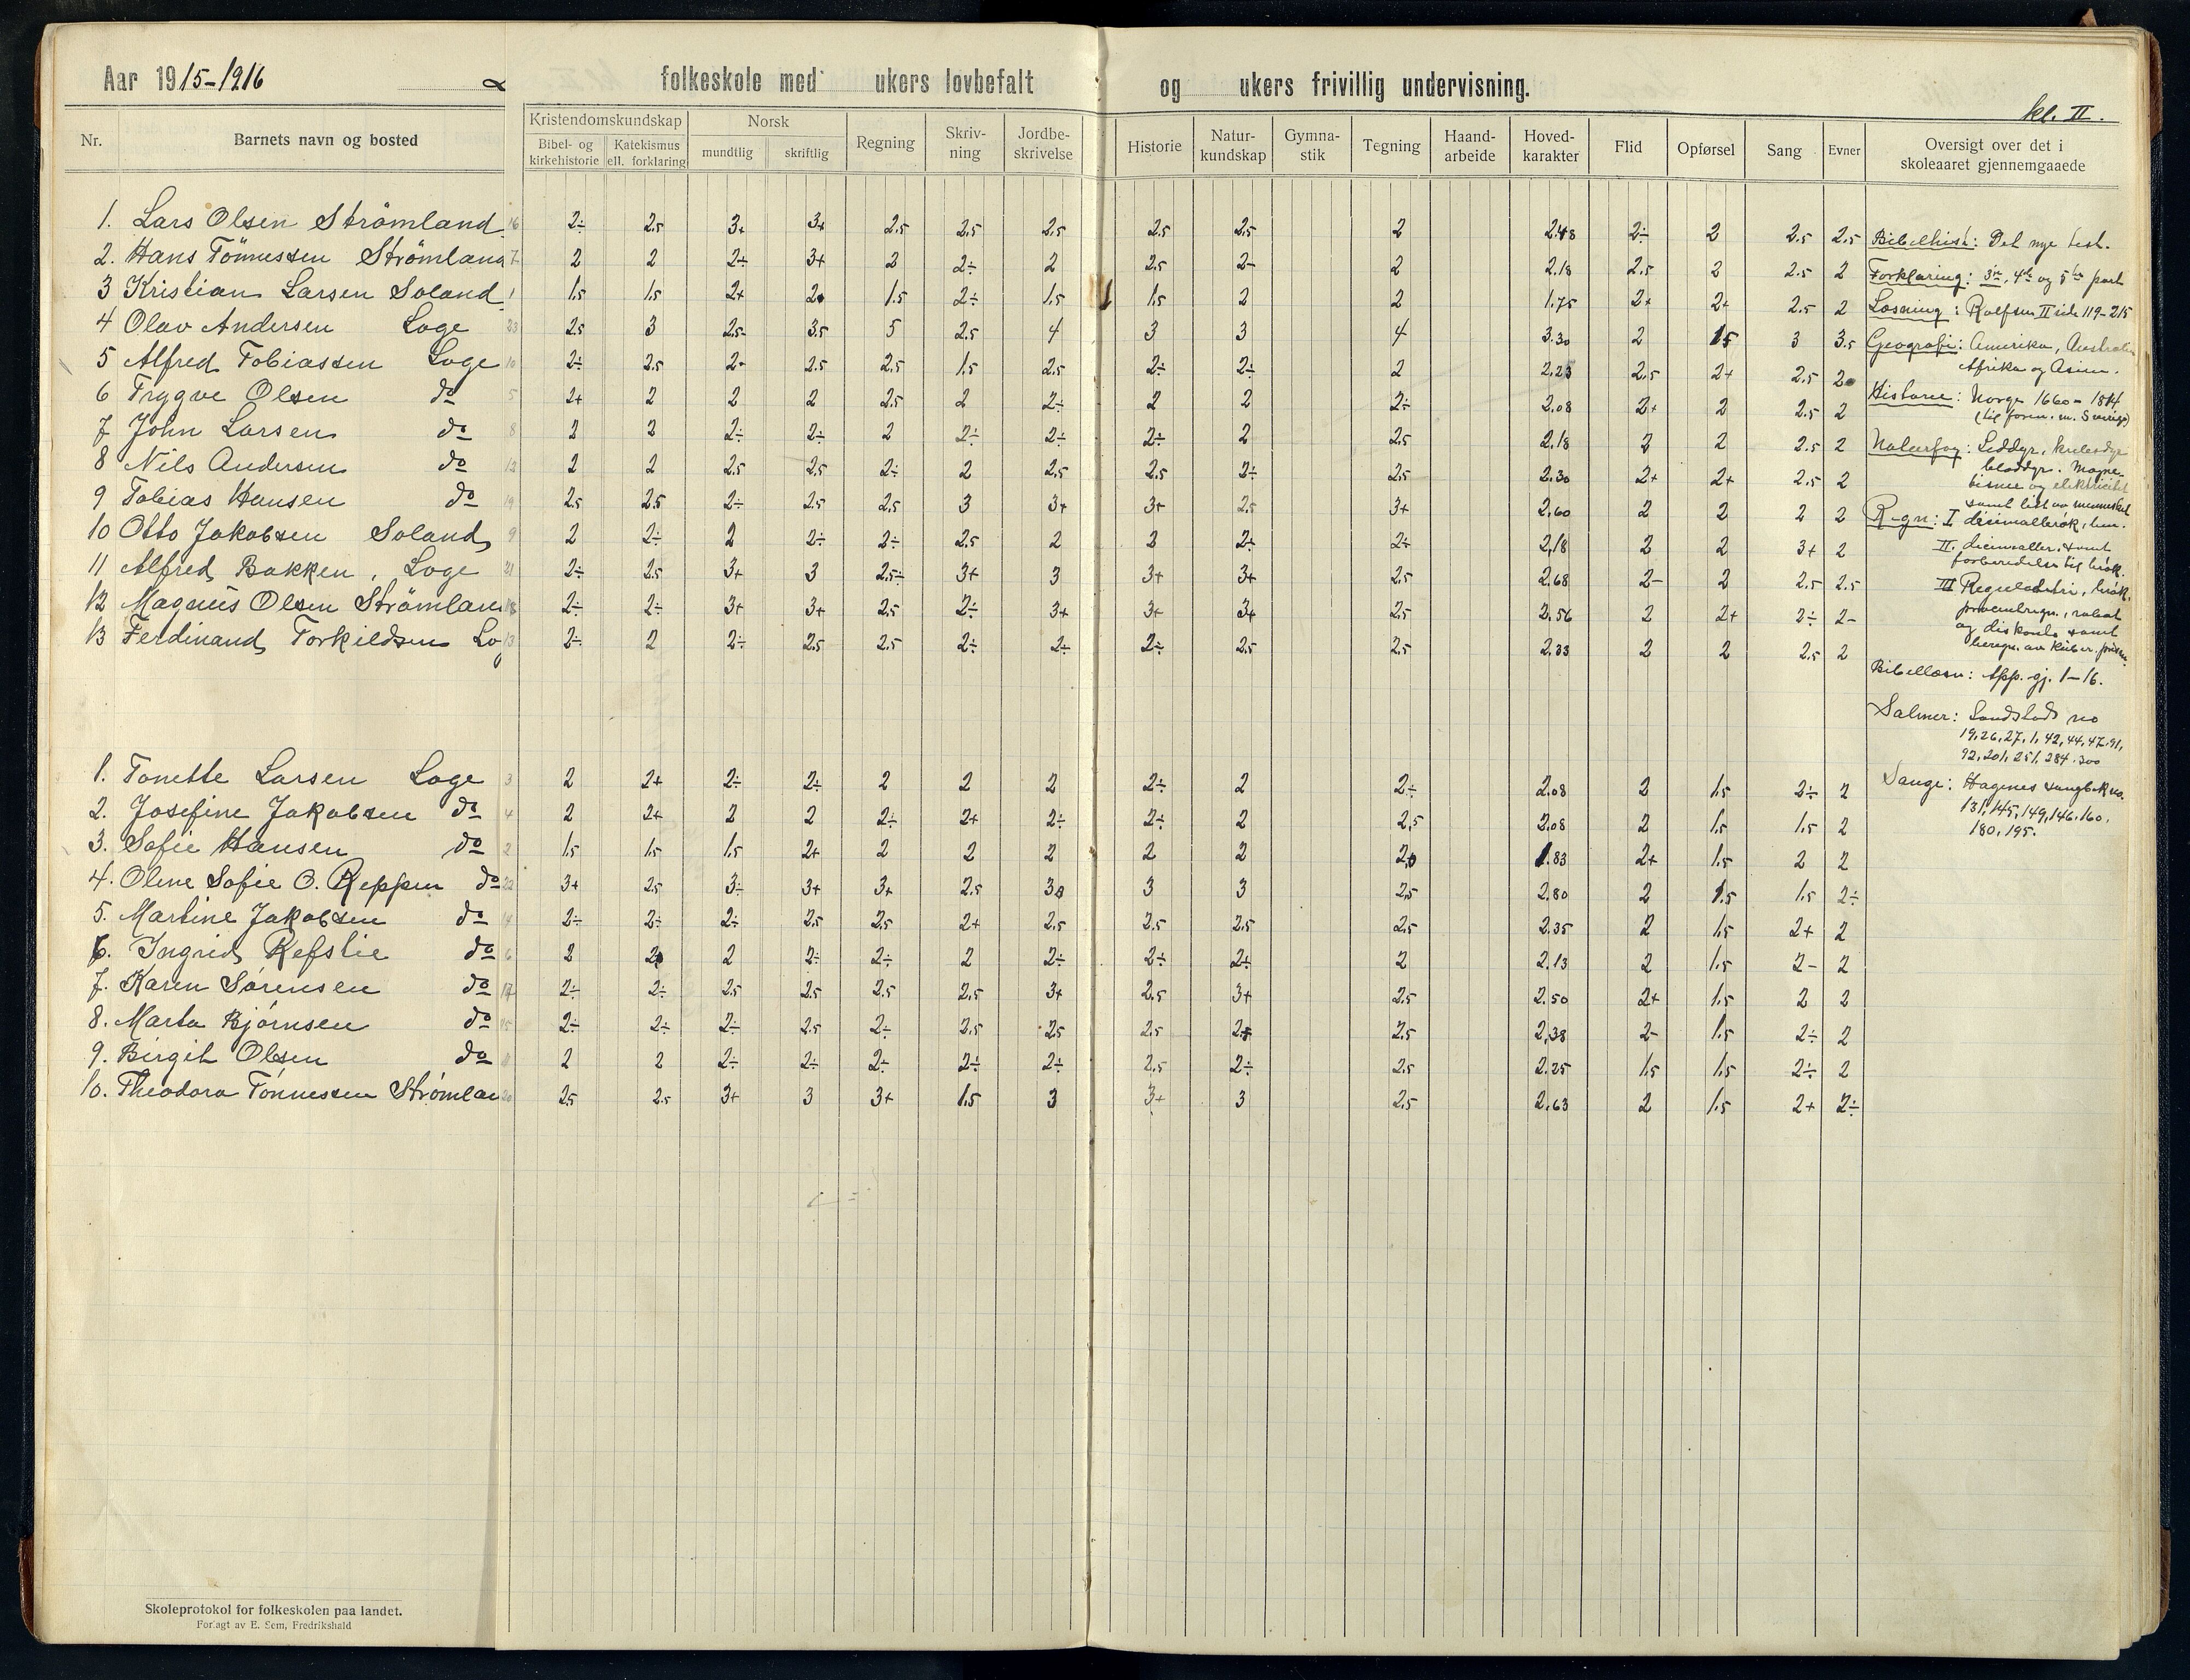 Aar 1915-1916 folkeskole med ukers lovbefalt og ukers frivillig undervisning.
kl. II.
Nr. Barnets navn og bosted Kristendomskundskap Bibel- og kirkehistorie Katekismus ell. forklaring Norsk mundtlig skriftlig Regning Skriv-ning Jordbe-skrivelse Historie Natur-kundskap Gymna-stik Tegning Haand-arbeide Hoved-karakter Flid Opførsel Sang Evner Oversigt over det i skoleaaret gjennemgaaede
1. Lars Olsen Strömland 16 2÷ 2.5 3+ 3+ 2.5 2.5 2.5 2.5 2.5 2 2.48 2÷ 2 2.5 2.5
2. Hans Tönnessen Strömland 7 2 2 2÷ 3+ 2 2÷ 2 2.5 2- 2 2.18 2.5 2 2.5 2
3 Kristian Larsen Soland 1 1.5 1.5 2+ 2 1.5 2÷ 1.5 1.5 2 2 1.75 2+ 2+ 2.5 2
4 Olav Andersen Loge 23 2.5 3 2.5 3.5 5 2.5 4 3 3 4 3.30 2 1.5 3 3.5
5 Alfred Tobiassen Loge 10 2÷ 2.5 2- 2.5 2.5 1.5 2.5 2÷ 2÷ 2 2.23 2.5 2+ 2.5 2
6 Trygve Olsen do 5 2+ 2 2 2 2.5 2 2÷ 2 2 2÷ 2.08 2+ 2 2.5 2
7 John Larsen do 8 2 2 2÷ 2÷ 2 2÷ 2÷ 2÷ 2 2.5 2.18 2 2 2.5 2
8 Nils Andersen do 12 2 2 2.5 2.5 2÷ 2 2.5 2.5 2÷ 2.5 2.30 2+ 2+ 2.5 2
9 Tobias Hansen do 19 2.5 2.5 2÷ 2.5 2.5 3 3+ 3+ 2.5 3+ 2.60 2 2 2 2
10 Otto Jakobsen Soland 9 2 2÷ 2 2÷ 2÷ 2.5 2 2 2÷ 2÷ 2,18 2 2 3+ 2
11 Alfred Bakken, Loge 21 2÷ 2.5 3+ 3 2.5÷ 3+ 3 3+ 3+ 2.5 2.68 2- 2 2.5 2.5
12 Magnus Olsen Strömlan 18 2÷ 2÷ 3+ 3+ 2.5 2÷ 3+ 3+ 3+ 2.5 2.56 2 2+ 2÷ 2-
13 Ferdinand Torkildsen Log 13 2÷ 2 2÷ 2.5 2.5 2÷ 2÷ 2÷ 2.5 2.5 2.33 2 2 2.5 2
1. Tonette Larsen Loge 3 2 2+ 2÷ 2÷ 2 2 2 2÷ 2 2÷ 2.08 2 1.5 2÷ 2
2. Josefine Jakobsen do 4 2 2+ 2 2 2÷ 2+ 2÷ 2÷ 2 2,5 2.08 2 1.5 1.5 2
3. Sofie Hansen do 2 1.5 1.5 1.5 2+ 2 2 2 2 2 2 1.83 2+ 1.5 2 2
4. Oline Sofie O. Reppen do 22 3+ 2.5 3÷ 3+ 3+ 2.5 3 3 3 2,5 2.80 2 1.5 1.5 2÷
5. Martine Jakobsen do 14 2÷ 2÷ 2÷ 2.5 2.5 2+ 2.5 2.5 2.5 2.5 2.35 2 1.5 2+ 2
6. Ingrid Refslie do 6 2 2 2 2÷ 2÷ 2 2÷ 2÷ 2÷ 2 2.13 2 1.5 2- 2
7. Karen Sørensen do 17 2÷ 2÷ 2.5 2.5 2.5 2.5 3+ 2.5 3+ 2.5 2.50 2+ 1.5 2 2
8. Marta Bjørnsen do 15 2÷ 2÷ 2÷ 2.5 2÷ 2.5 2.5 2.5 2.5 2.5 2,38 2- 1.5 2÷ 2
9. Birgit Olsen do 11 2 2 2÷ 2÷ 2÷ 2÷ 2÷ 2.5 2÷ 2.5 2.25 1.5 1.5 2÷ 2
10. Theodora Tönnessen Strömlan 20 2.5 2.5 3+ 3 3+ 1.5 3 3+ 3 2.5 2.63 2 1.5 2+ 2÷
Bibelhist: Det nye test.
Forklaring: 3die, 4de og 5te part
Læsning: Rolfsen II side 119-215
Geografi: Amerika, Australien
Afrika og Asien.
Historie: Norge 1660-1814
(til foren. m. Sverige)
Naturfag: Leddyr,
bløddyr. Magne-
tisme og elektricitet
samt litt av mennesket
Regn: I desimalbrøk,
II. desimaller. samt
forberedelse til brøk.
III Reguladetri, brøk,
procentregn., rabat
og diskonto samt
beregn. av kuber.
Bibellæsn: App. gj. 1-16.
Salmer: Landstads no
19, 26, 27, 1, 42, 44, 47, 91,
92, 201, 251, 284. 300
Sange: Hagenes sangbok no.
131, 145, 149, 146, 160,
180, 195.
Skoleprotokol for folkeskolen paa landet.
Forlagt av E. Sem, Fredrikshald